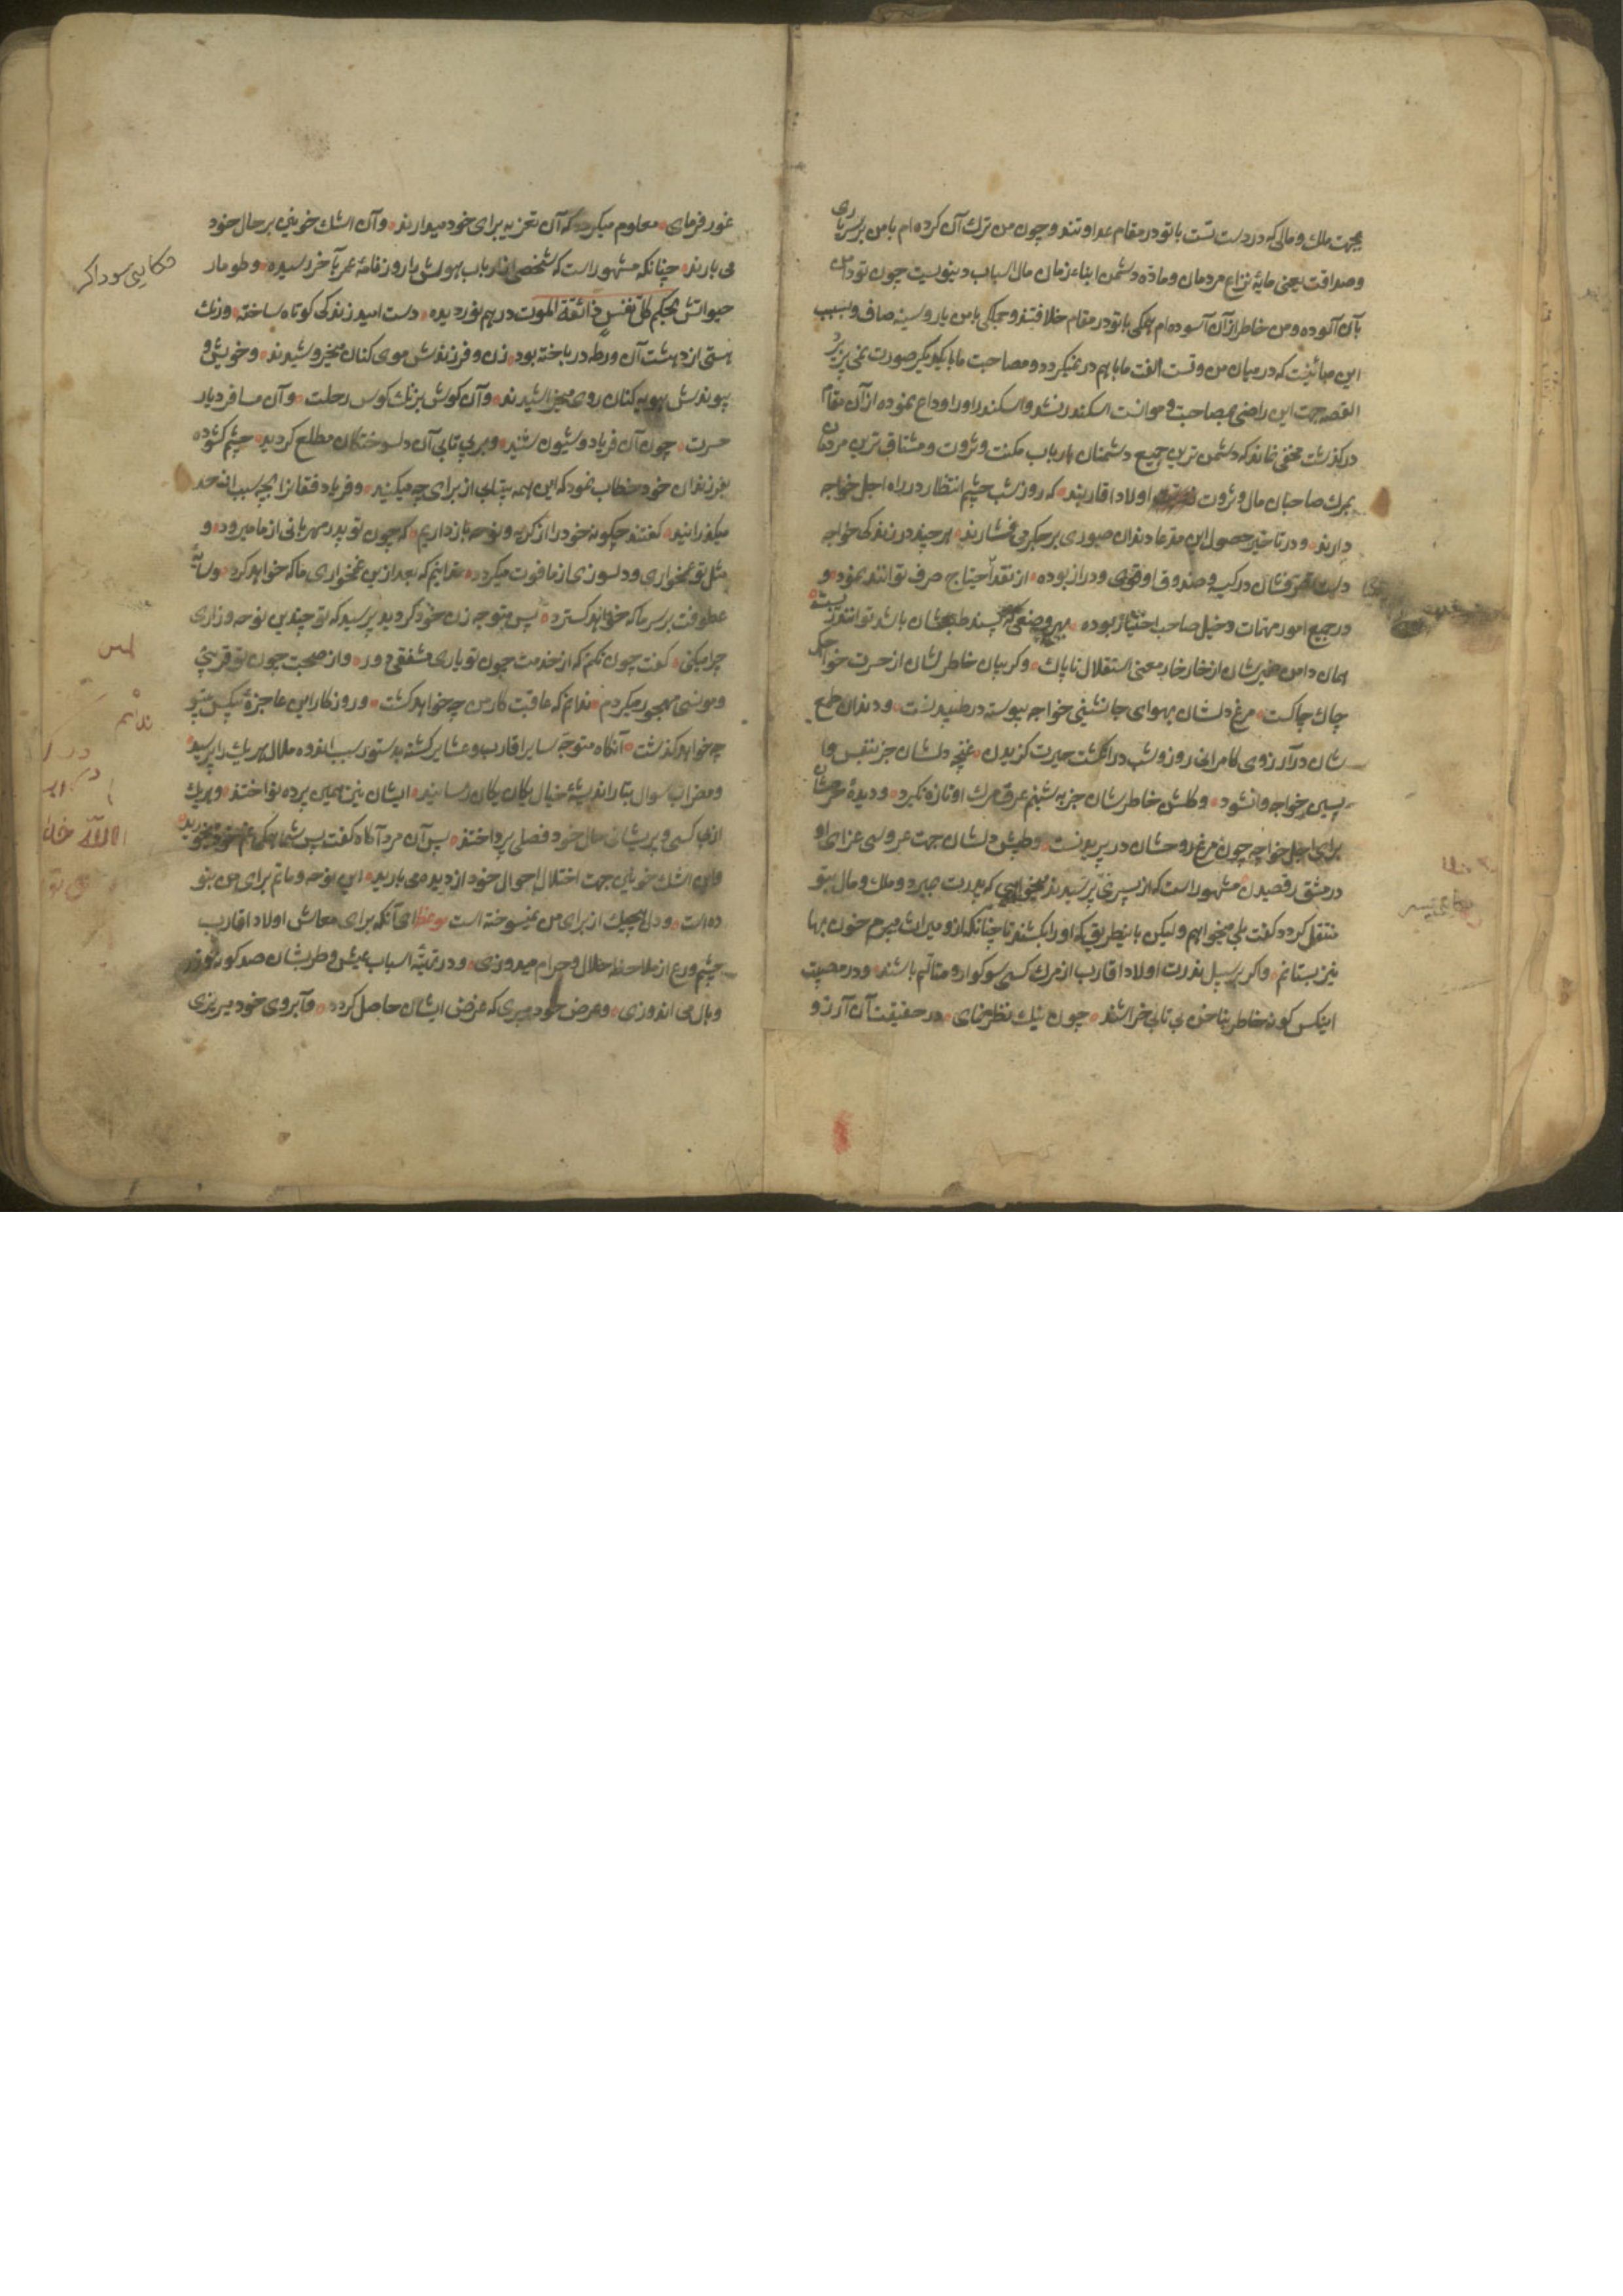 بجهت ملك و مالی که در دست تست با تو در مقام عداوتند و چون من ترك آن کرده ام با من بر سر یاری
و صداقت یعنی مایهٔ نزاع مردمان و مادهٔ دشمن ابناء زمان مال و اسباب دنیویست چون تو دامن
بآن آلوده و من خاطر از آن آسوده ام همکی با تو در مقام خلافند و جملکی با من یار و سینه صاف و بسبب
این مباینت که در میان من و تست الفت ما با هم در نمیکردد و مصاحبت ما با یکدیکر صورت نمی پذیرد
القصه جهت این راضی بمصاحبت و موانست اسکندر نشد و اسکندر او را وداع نموده از آن مقام
در کذشت مخفی نماند که دشمن ترین جمیع دشمنان ارباب مکنت و ثروت و مشتاق ترین مردمان
بمرك صاحبان مال و ثروت اولاد اقاربند که روز و شب چشم انتظار در راه اجل خواجه
دارند و در تاخیر حصول این مدعا دندان صبوری بر جکر می فشارند هر چند در زندکی خواجه
دست تصرفشان در کیسه و صندوق او قوی و دراز بوده از نقد احتیاج صرف توانند نمود و
در جمیع امور مهمات دخیل صاحب اختیار بوده بهر وضعی که پسند طبعشان باشد توانند زیست
همان دامن ضمیرشان از خار خار معنی استقلال ناپاك و کریبان خاطرشان از حسرت خواجکی
چاك چاکست مرغ دلشان بهوای جانشینی خواجه پیوسته در طپیدنست و دندان طمع
شان در آرزوی کامرانی روز و شب در انکشت حیرت کزیدن غنچه دلشان جز بنفس وا
پسین خواجه وا نشود و کلشن خاطرشان جز به شبنم عرق مرك او تازه نکردد و دیدهٔ حرصشان
برای اجل خواجه چون مرغ روحشان در پریدنست و طپش دلشان جهت عروسی عزای او
در مشق رقصیدن مشهور است که از پسری پرسیدند میخواهی که پدرت میرد و ملك و مال بتو
منتقل کردد کفت بلی میخواهم و لیکن باینطریق که او را بکشند تا چنانکه ازو میراث میبرم خون بها
نیز بستانم و اکر بر سبیل ندرت اولاد اقارب از مرك کسی سوکوار و متالم باشند و در مصیبت
اینکس کونه خاطر بناخن بی تابی خراشند چون نیك نظر نمای در حقیقت آن آرزو
غور فرمای معلوم میکردد که آن تعزیه برای خود میدارند و آن اشك خونین بر حال خود
می بارند چنانکه مشهور است که شخصی از ارباب هوش را روزنامهٔ عمر بآخر رسیده و طومار
حیواتش بحکم کل نفس ذائقة الموت در هم نوردیده دست امید زندکی کوتاه ساخته و رنك
هستی از دهشت آن ورطه در باخته بود زن و فرزندش موی کنان میخروشیدند و خویش و
پیوندش مویه کنان روی میخراشیدند و آن کوش بزنك کوس رحلت و آن مسافر دیار
حسرت چون آن فریاد و شیون شنید و بر بی تابی آن دلسوختکان مطلع کردید چشم کشوده
بفرزندان خود خطاب نمود که این همه بیتابی از برای چه میکنید و فریاد و فغانرا بچه سبب از حد
میکذرانید کفتند چکونه خود را از کریه و نوحه باز داریم که چون تو پدر مهربانی از ما میرود و
مثل تو غمخواری و دلسوزی از ما فوت میکردد ندانیم که بعد ازین غمخواری ما که خواهد کرد و سایهٔ
عطوفت بر سر ما که خواهد کسترد پس متوجه زن خود کردید پرسید که تو چندین نوحه و زاری
چرا میکنی کفت چون نکنم که از خدمت چون تو یاری مشفقی دور و از صحبت چون تو قرینی
و مونسی مهجور میکردم ندانم که عاقبت کار من چه خواهد کشت و روزکار این عاجزهٔ بیکس بیتو
چه خواهد کذشت آنکاه متوجه سایر اقارب و عشایر کشته بدستور سبب اندوه و ملال هر یك را پرسید
و مضراب سوال بتار اندیشهٔ خیال یکان یکان رسانید ایشان نیز همین پرده نواختند و هر یك
از بیکسی و پریشان حال خود فصلی پرداختند پس آن مرد آکاه کفت پس شما همکی غم خود میخورید
و این اشك خونین جهت اختلال احوال خود از دیده می بارید این نوحه و ماتم برای من نبو
ده است و دل هیچیك از برای من نسوخته است موعظه ای آنکه برای معاش اولاد اقارب
چشم ورع از ملاحظه حلال و حرام میدوزی و در تهیهٔ اسباب عیش و طربشان صد کونه وزر
و بال می اندوزی و عرض خود میبری که غرض ایشان حاصل کردد و آبروی خود میریزی
حکایت سوداکر